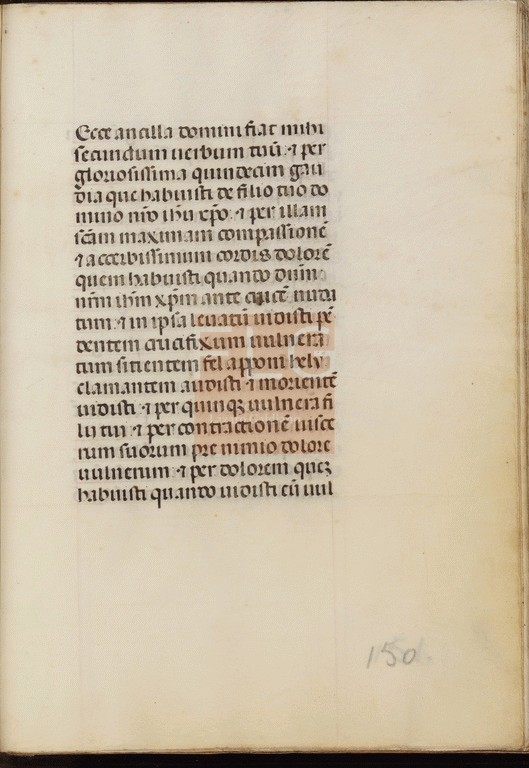 Ecce ancilla domini fiat mihi
secundum uerbum tuū. ⁊ per
gloriosissima quindecim gau
dia que habuisti de filio tuo do
mino nr̄o ih̄u xp̄o. ⁊ per illam
sc̄am maximam compassionē
⁊ acerbissimum cordis dolorē
quem habuisti quando dn̄m
nr̄m ih̄m xp̄m ante crucē nuda
tum. ⁊ in ipsa leuatū uidisti pē
dentem crucifixum uulnera
tum sitientem fel apponi hely
clamantem audisti ⁊ morientē
uidisti. ⁊ per quinqꝫ uulnera fi
lii tui ⁊ per contractionē uisce
rum suorum pre nimio dolore
uulnerum. ⁊ per dolorem queꝫ
habuisti quando uidisti eū uul
150